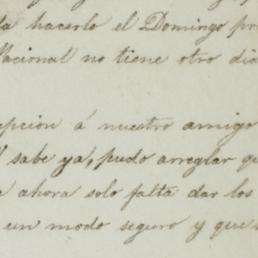 hacerlo el Domingo
Nacional no tiene otro
á nuestro amigo
sabe ya, pudo arreglar
ahora solo falta dar los
un modo seguro y que